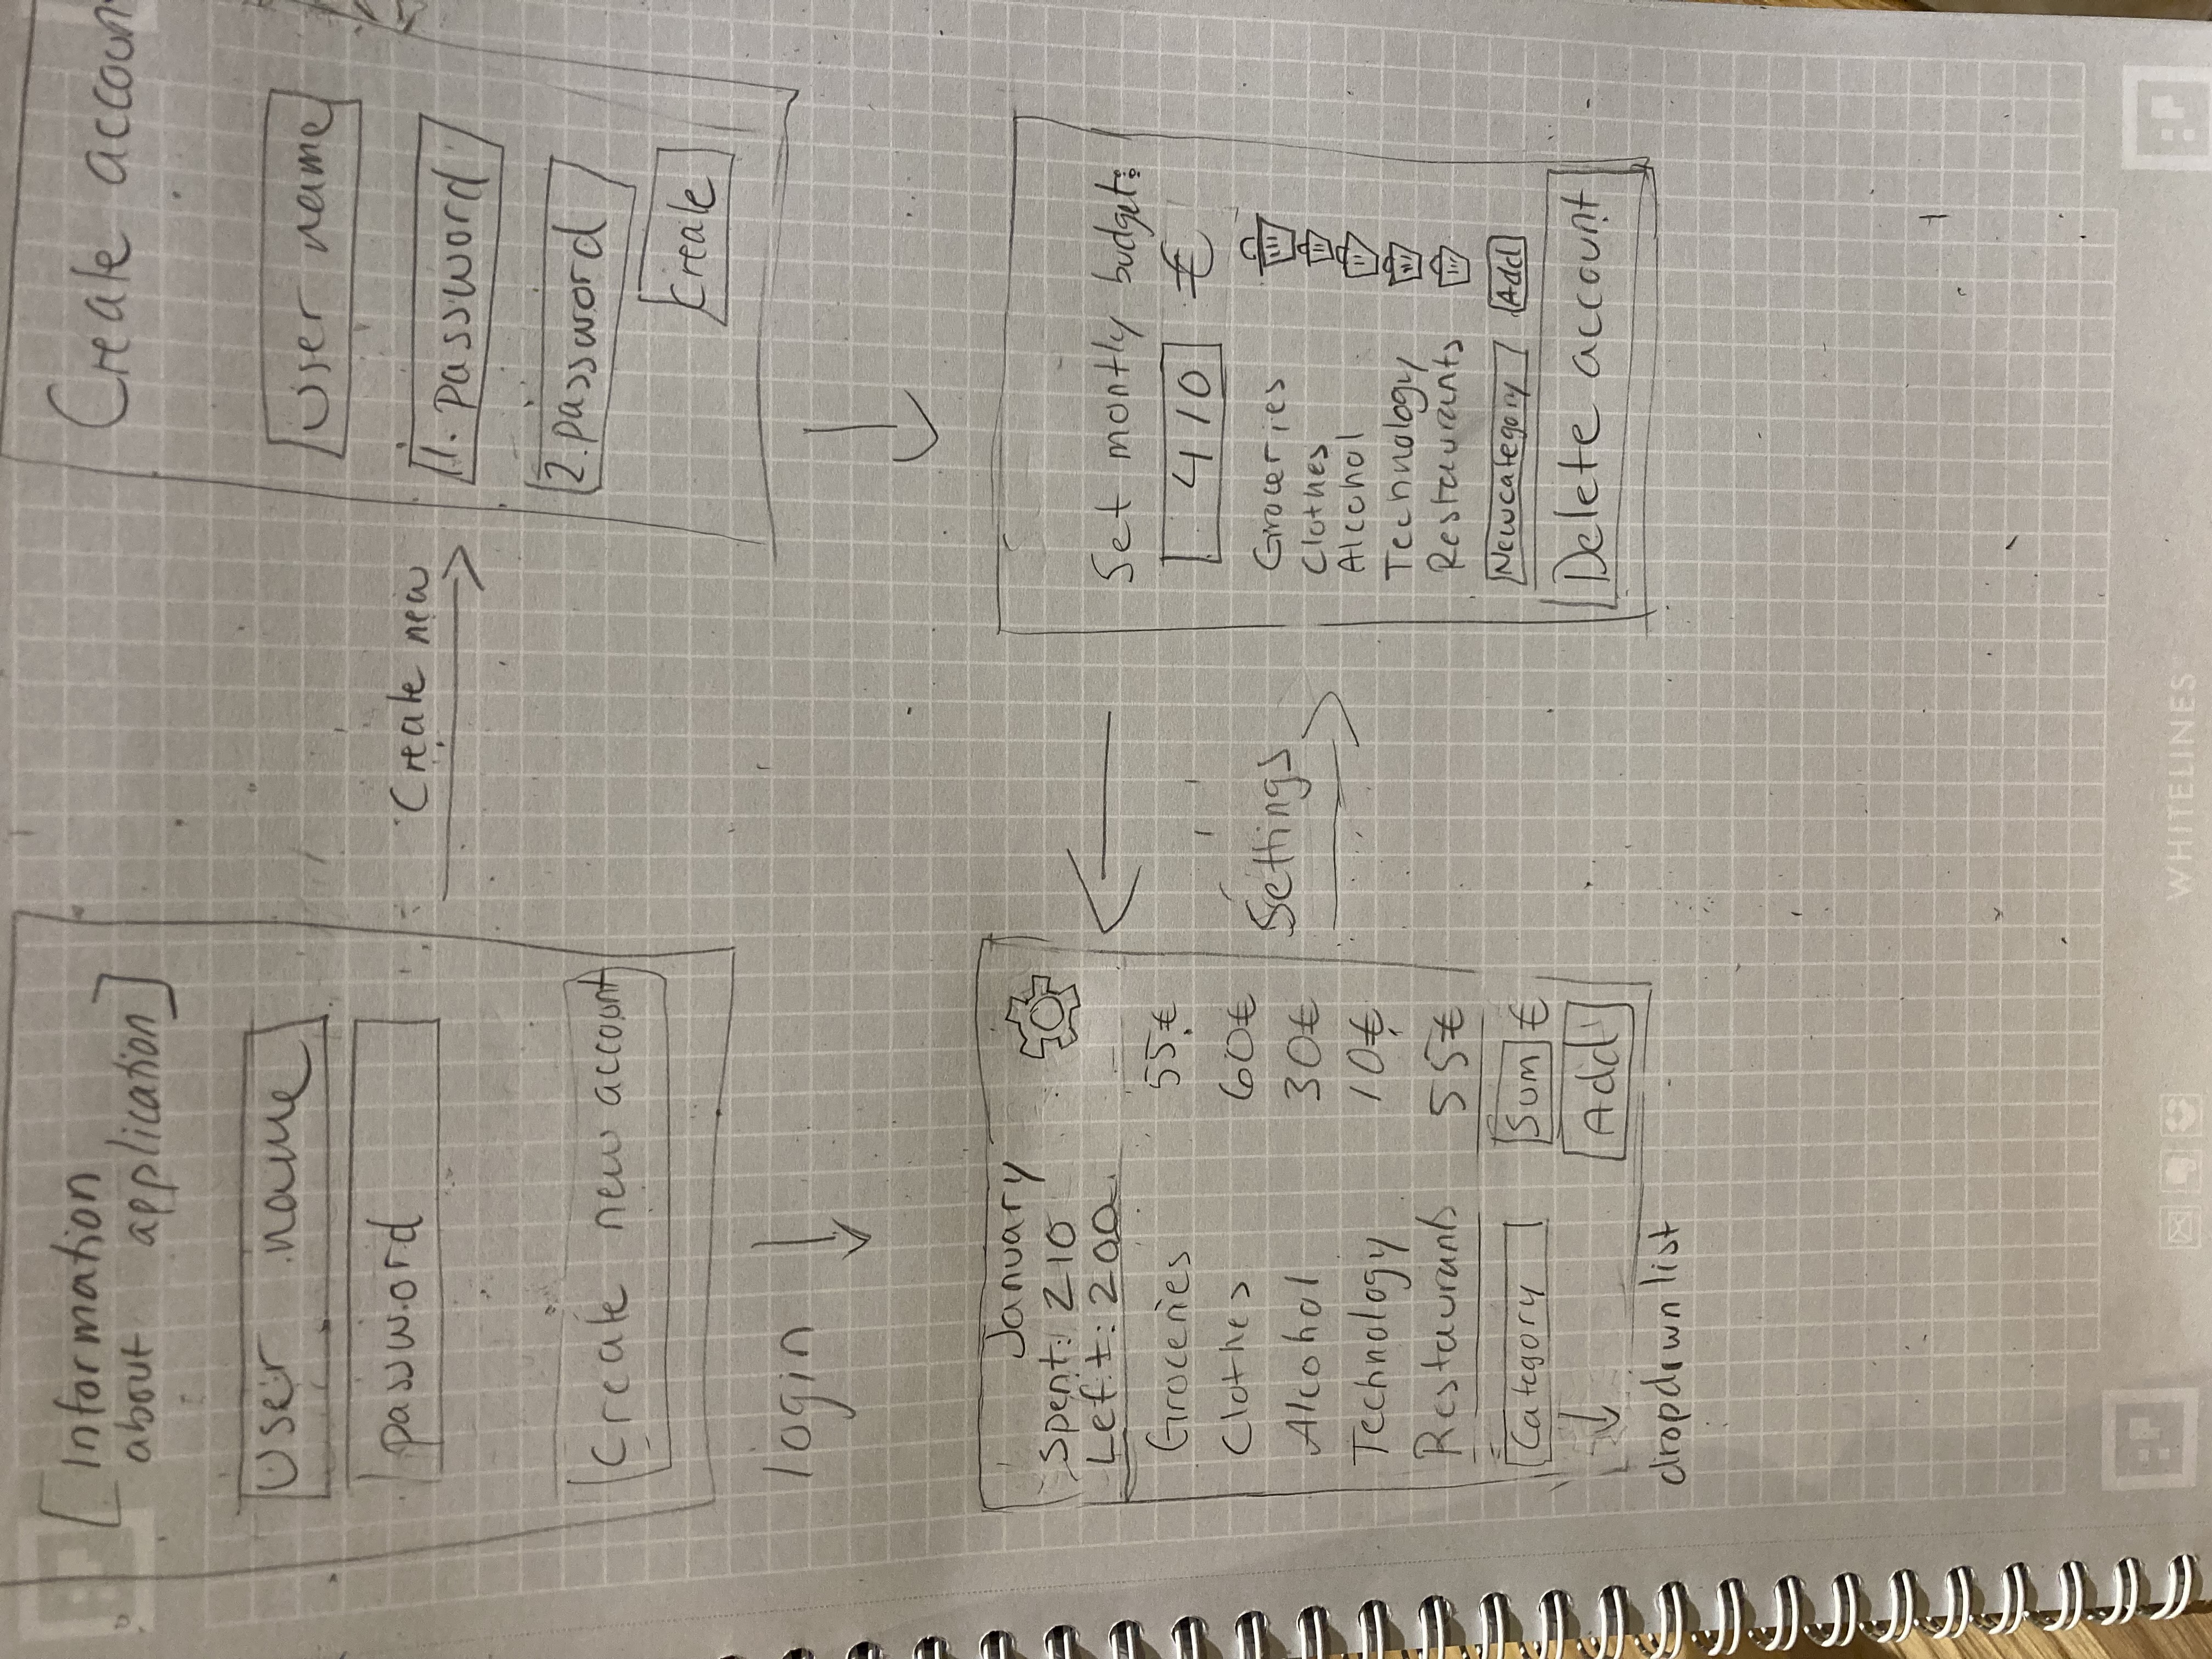 [Information
about application]
User name
password
Create new account
Create new
Create accoun
User name
1. password
2. password
Create
login
January
Spent: 210
Left: 200
Groceries 55€
Clothes 60€
Alcohol 30€
Technology 10€
Restaurants 55€
Category Sum €
Add
dropdown list
Settings
Set montly budget:
410 €
Groceries
Clothes
Alcohol
Technology
Restaurants
New category Add
Delete account
WHITELINES